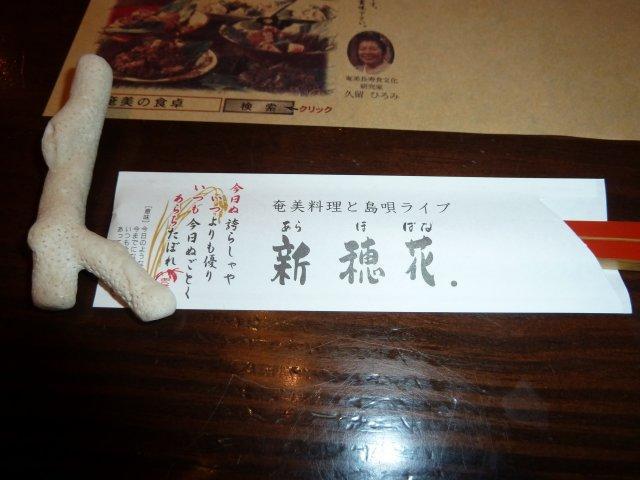 奄美長寿食文化
研究家
久留 ひろみ
奄美の食卓
検索
クリック
奄美料理と島唄ライブ
あら ほ ばな
新穂花
今日ぬ誇らしゃや
いつよりも優り
いつも今日ぬごとく
あらちたぼれ
[意味]
今日のような